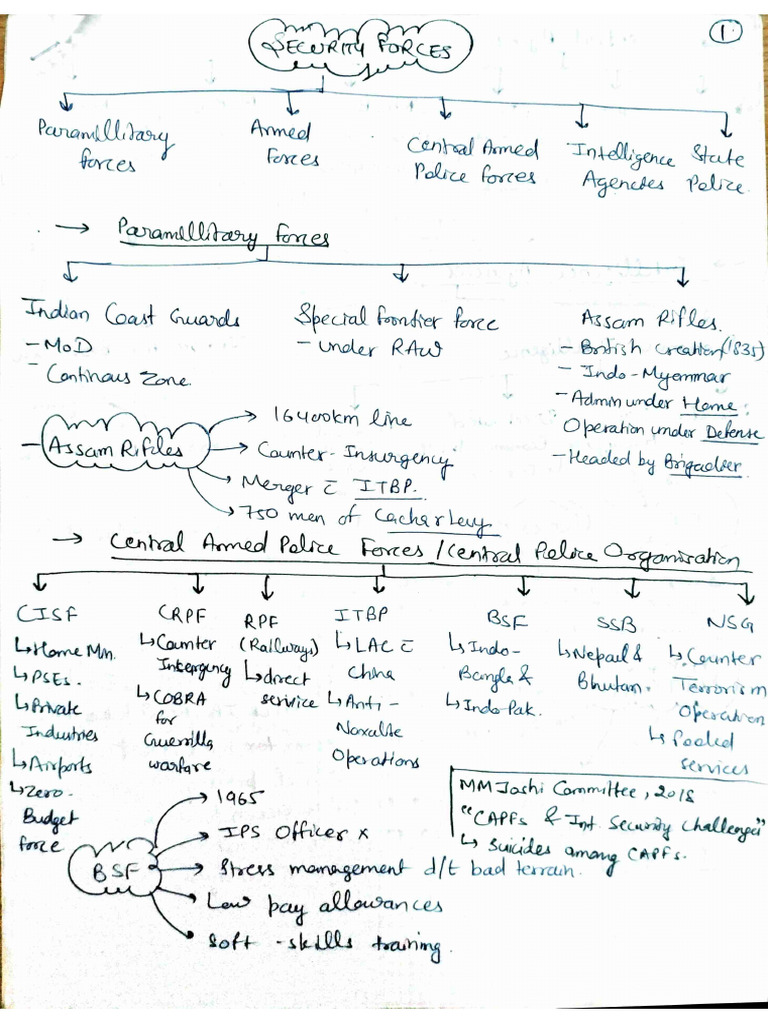 1
SECURITY FORCES
Paramillitary Forces
Armed Forces
Central Armed Police Forces
Intelligence Agencies
State Police.
→ Paramillitary Forces
Indian Coast Guards
- MoD
- Continous Zone.
Special Frontier Force
- under RAW
Assam Rifles.
- British Creation (1835)
- Indo-Myanmar
- Admin under Home;
Operation under Defense
- Headed by Brigadier
- Assam Rifles
→ 16400km line
→ Counter-Insurgency
→ Merger c̄ ITBP.
→ 750 men of Cachar Levy
→ Central Armed Police Forces / Central Police Organisation
CISF
↳ Home Min.
↳ PSEs.
↳ Private
Industries
↳ Airports
↳ Zero-
Budget
force
CRPF
↳ Counter
Intergency
↳ COBRA
for
Guerrilla
warfare
RPF
(Railways)
↳ direct
service
ITBP
↳ LAC c̄
China
↳ Anti-
Naxalite
Operations
BSF
↳ Indo-
Bangla &
↳ Indo Pak.
SSB
↳ Nepal &
Bhutan.
NSG
↳ Counter
Terrorism
Operation
↳ Pooled
services
MM Joshi Committee, 2018
"CAPFs & Int. Security Challenges"
↳ Suicides among CAPFs.
BSF
→ 1965
→ IPS Officer x
→ Stress management d/t bad terrain.
→ Low pay allowances
→ Soft-skills training.